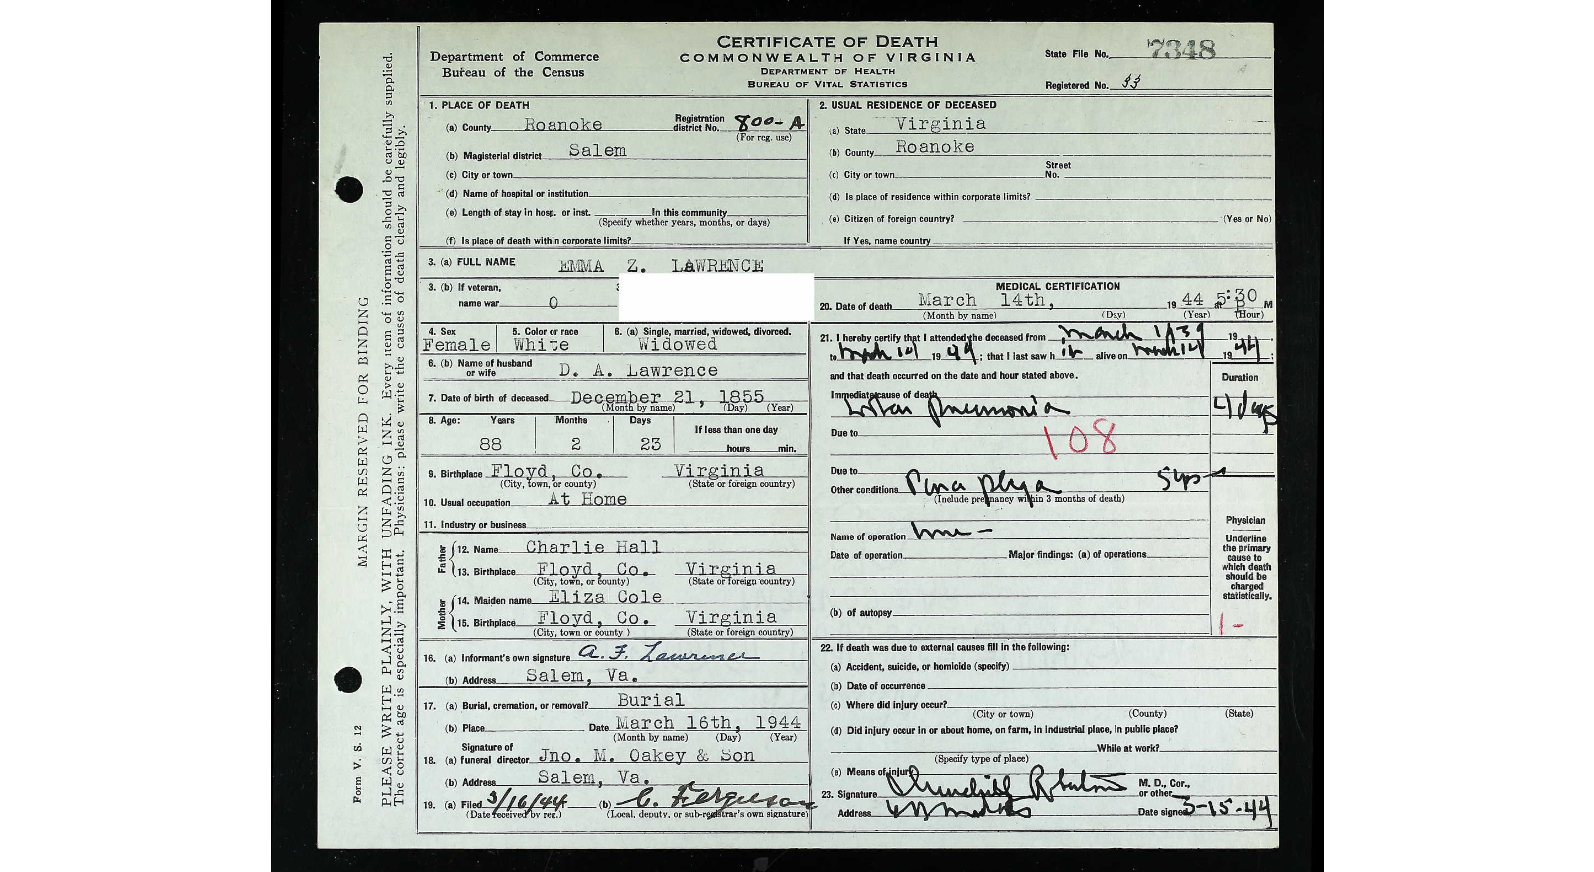 CERTIFICATE OF DEATH
COMMONWEALTH OF VIRGINIA
DEPARTMENT OF HEALTH
BUREAU OF VITAL STATISTICS
Department of Commerce
Bureau of the Census
State File No. 7348
Registered No. 33
1. PLACE OF DEATH
(a) County Roanoke Registration district No. 800-A
(For reg. use)
(b) Magisterial district Salem
(c) City or town
(d) Name of hospital or institution
(e) Length of stay in hosp. or inst. In this community
(Specify whether years, months, or days)
(f) Is place of death within corporate limits?
2. USUAL RESIDENCE OF DECEASED
(a) State Virginia
(b) County Roanoke
(c) City or town Street No.
(d) Is place of residence within corporate limits?
(e) Citizen of foreign country? (Yes or No)
If Yes, name country
3. (a) FULL NAME EMMA Z. LAWRENCE
3. (b) If veteran,
name war 0
4. Sex Female
5. Color or race White
6. (a) Single, married, widowed, divorced. Widowed
6. (b) Name of husband or wife D. A. Lawrence
7. Date of birth of deceased December 21, 1855
(Month by name) (Day) (Year)
8. Age: Years Months Days If less than one day
88 2 23 hours min.
9. Birthplace Floyd, Co. Virginia
(City, town, or county) (State or foreign country)
10. Usual occupation At Home
11. Industry or business
Father
12. Name Charlie Hall
13. Birthplace Floyd, Co. Virginia
(City, town, or county) (State or foreign country)
Mother
14. Maiden name Eliza Cole
15. Birthplace Floyd, Co. Virginia
(City, town or county ) (State or foreign country)
16. (a) Informant's own signature A. F. Lawrence
(b) Address Salem, Va.
17. (a) Burial, cremation, or removal? Burial
(b) Place Date March 16th, 1944
(Month by name) (Day) (Year)
18. (a) Signature of funeral director Jno. M. Oakey & Son
(b) Address Salem, Va.
19. (a) Filed 3/16/44 (b) C. Ferguson
(Date received by reg.) (Local, deputy, or sub-registrar's own signature)
MEDICAL CERTIFICATION
20. Date of death March 14th, 1944 5:30 P M
(Month by name) (Day) (Year) (Hour)
21. I hereby certify that I attended the deceased from March 19
to March 14 1944; that I last saw h alive on March 14 1944;
and that death occurred on the date and hour stated above.
Duration
Immediate cause of death Lobar pneumonia 4 days
Due to
108
Due to
Other conditions
(Include pregnancy within 3 months of death)
Name of operation
Date of operation Major findings: (a) of operations
(b) of autopsy
Physician
Underline
the primary
cause to
which death
should be
charged
statistically.
1-
22. If death was due to external causes fill in the following:
(a) Accident, suicide, or homicide (specify)
(b) Date of occurrence
(c) Where did injury occur?
(City or town) (County) (State)
(d) Did injury occur in or about home, on farm, in industrial place, in public place?
While at work?
(Specify type of place)
(e) Means of injury
23. Signature Churchill M. D., Cor., or other
Address Date signed 3-15-44
MARGIN RESERVED FOR BINDING
PLEASE WRITE PLAINLY, WITH UNFADING INK. Every item of information should be carefully supplied.
The correct age is especially important. Physicians: please write the causes of death clearly and legibly.
Form V. S. 12